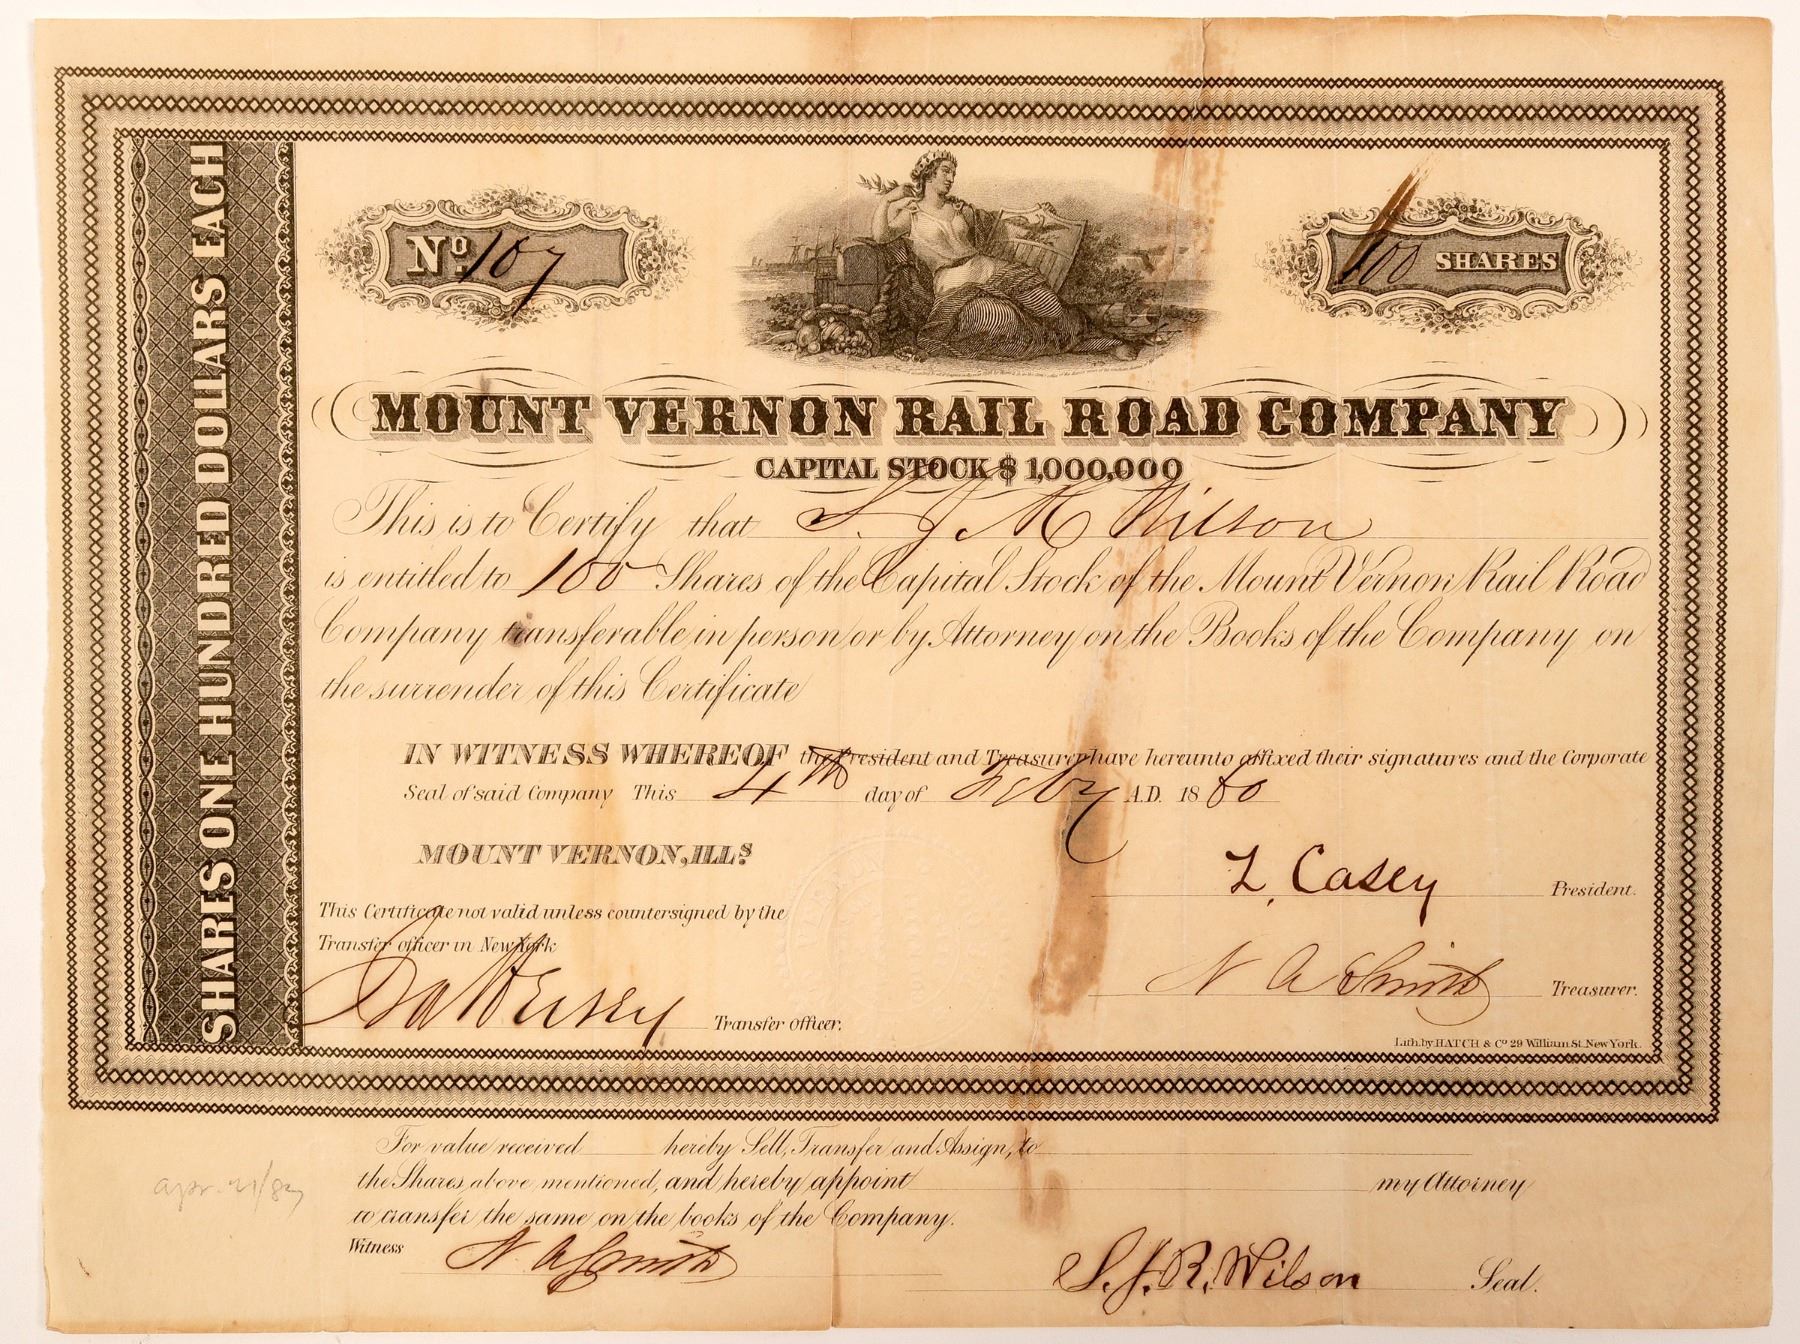 SHARES ONE HUNDRED DOLLARS EACH
No. 107
100 SHARES
MOUNT VERNON RAIL ROAD COMPANY
CAPITAL STOCK $ 1,000,000
This is to Certify that S. J. R. Wilson
is entitled to 100 Shares of the Capital Stock of the Mount Vernon Rail Road
Company transferable in person or by Attorney on the Books of the Company on
the surrender of this Certificate
IN WITNESS WHEREOF the President and Treasurer have hereunto affixed their signatures and the Corporate
Seal of said Company This 4th day of Feby A.D. 1860
MOUNT VERNON, ILLS.
Z. Casey President.
This Certificate not valid unless countersigned by the
Transfer officer in New York
N A Smith Treasurer.
Transfer Officer.
Lith. by HATCH & Co 29 William St. New York.
For value received hereby Sell, Transfer and Assign, to
the Shares, above, mentioned, and hereby appoint my Attorney
to transfer the same on the books of the Company.
Witness N A Smith
S. J. R. Wilson Seal.